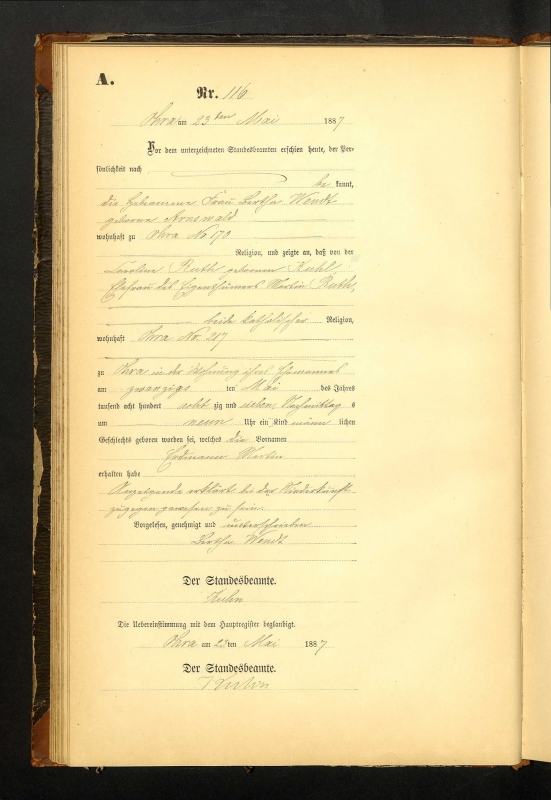 A.
Nr. 116
Ohra am 23 ten Mai 1887
Vor dem unterzeichneten Standesbeamten erschien heute, der Per-
sönlichkeit nach
be kannt,
die Hebamme Frau Bertha Wendt
geborene Arnswald
wohnhaft zu Ohra No 170
Religion, und zeigte an, daß von der
Caroline Ruth geborenen Kuhl,
Ehefrau des Eigenthümers Martin Ruth,
beide katholischer Religion,
wohnhaft Ohra No. 217
zu Ohra in der Wohnung ihres Ehemannes
am zwanzigs ten Mai des Jahres
tausend acht hundert acht zig und sieben, Nachmittag s
um neun Uhr ein Kind männ lichen
Geschlechts geboren worden sei, welches die Vornamen
Erdmann Martin
erhalten habe
Anzeigende erklärt bei der Niederkunft
zugegen gewesen zu sein.
Vorgelesen, genehmigt und unterschrieben
Bertha Wendt
Der Standesbeamte.
Kuhn
Die Uebereinstimmung mit dem Hauptregister beglaubigt.
Ohra am 23 ten Mai 1887
Der Standesbeamte.